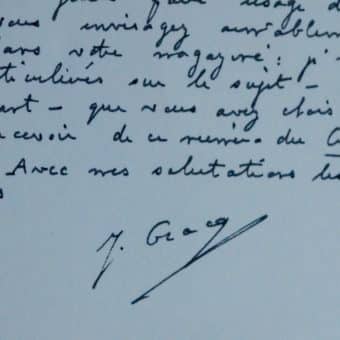 usage d
vous envisagez aimablem
dans votre magazine: j'
ticulières sur le sujet -
art - que vous avez chois
cevoir de ce numéro du
Avec mes salutations les
J. Gracq